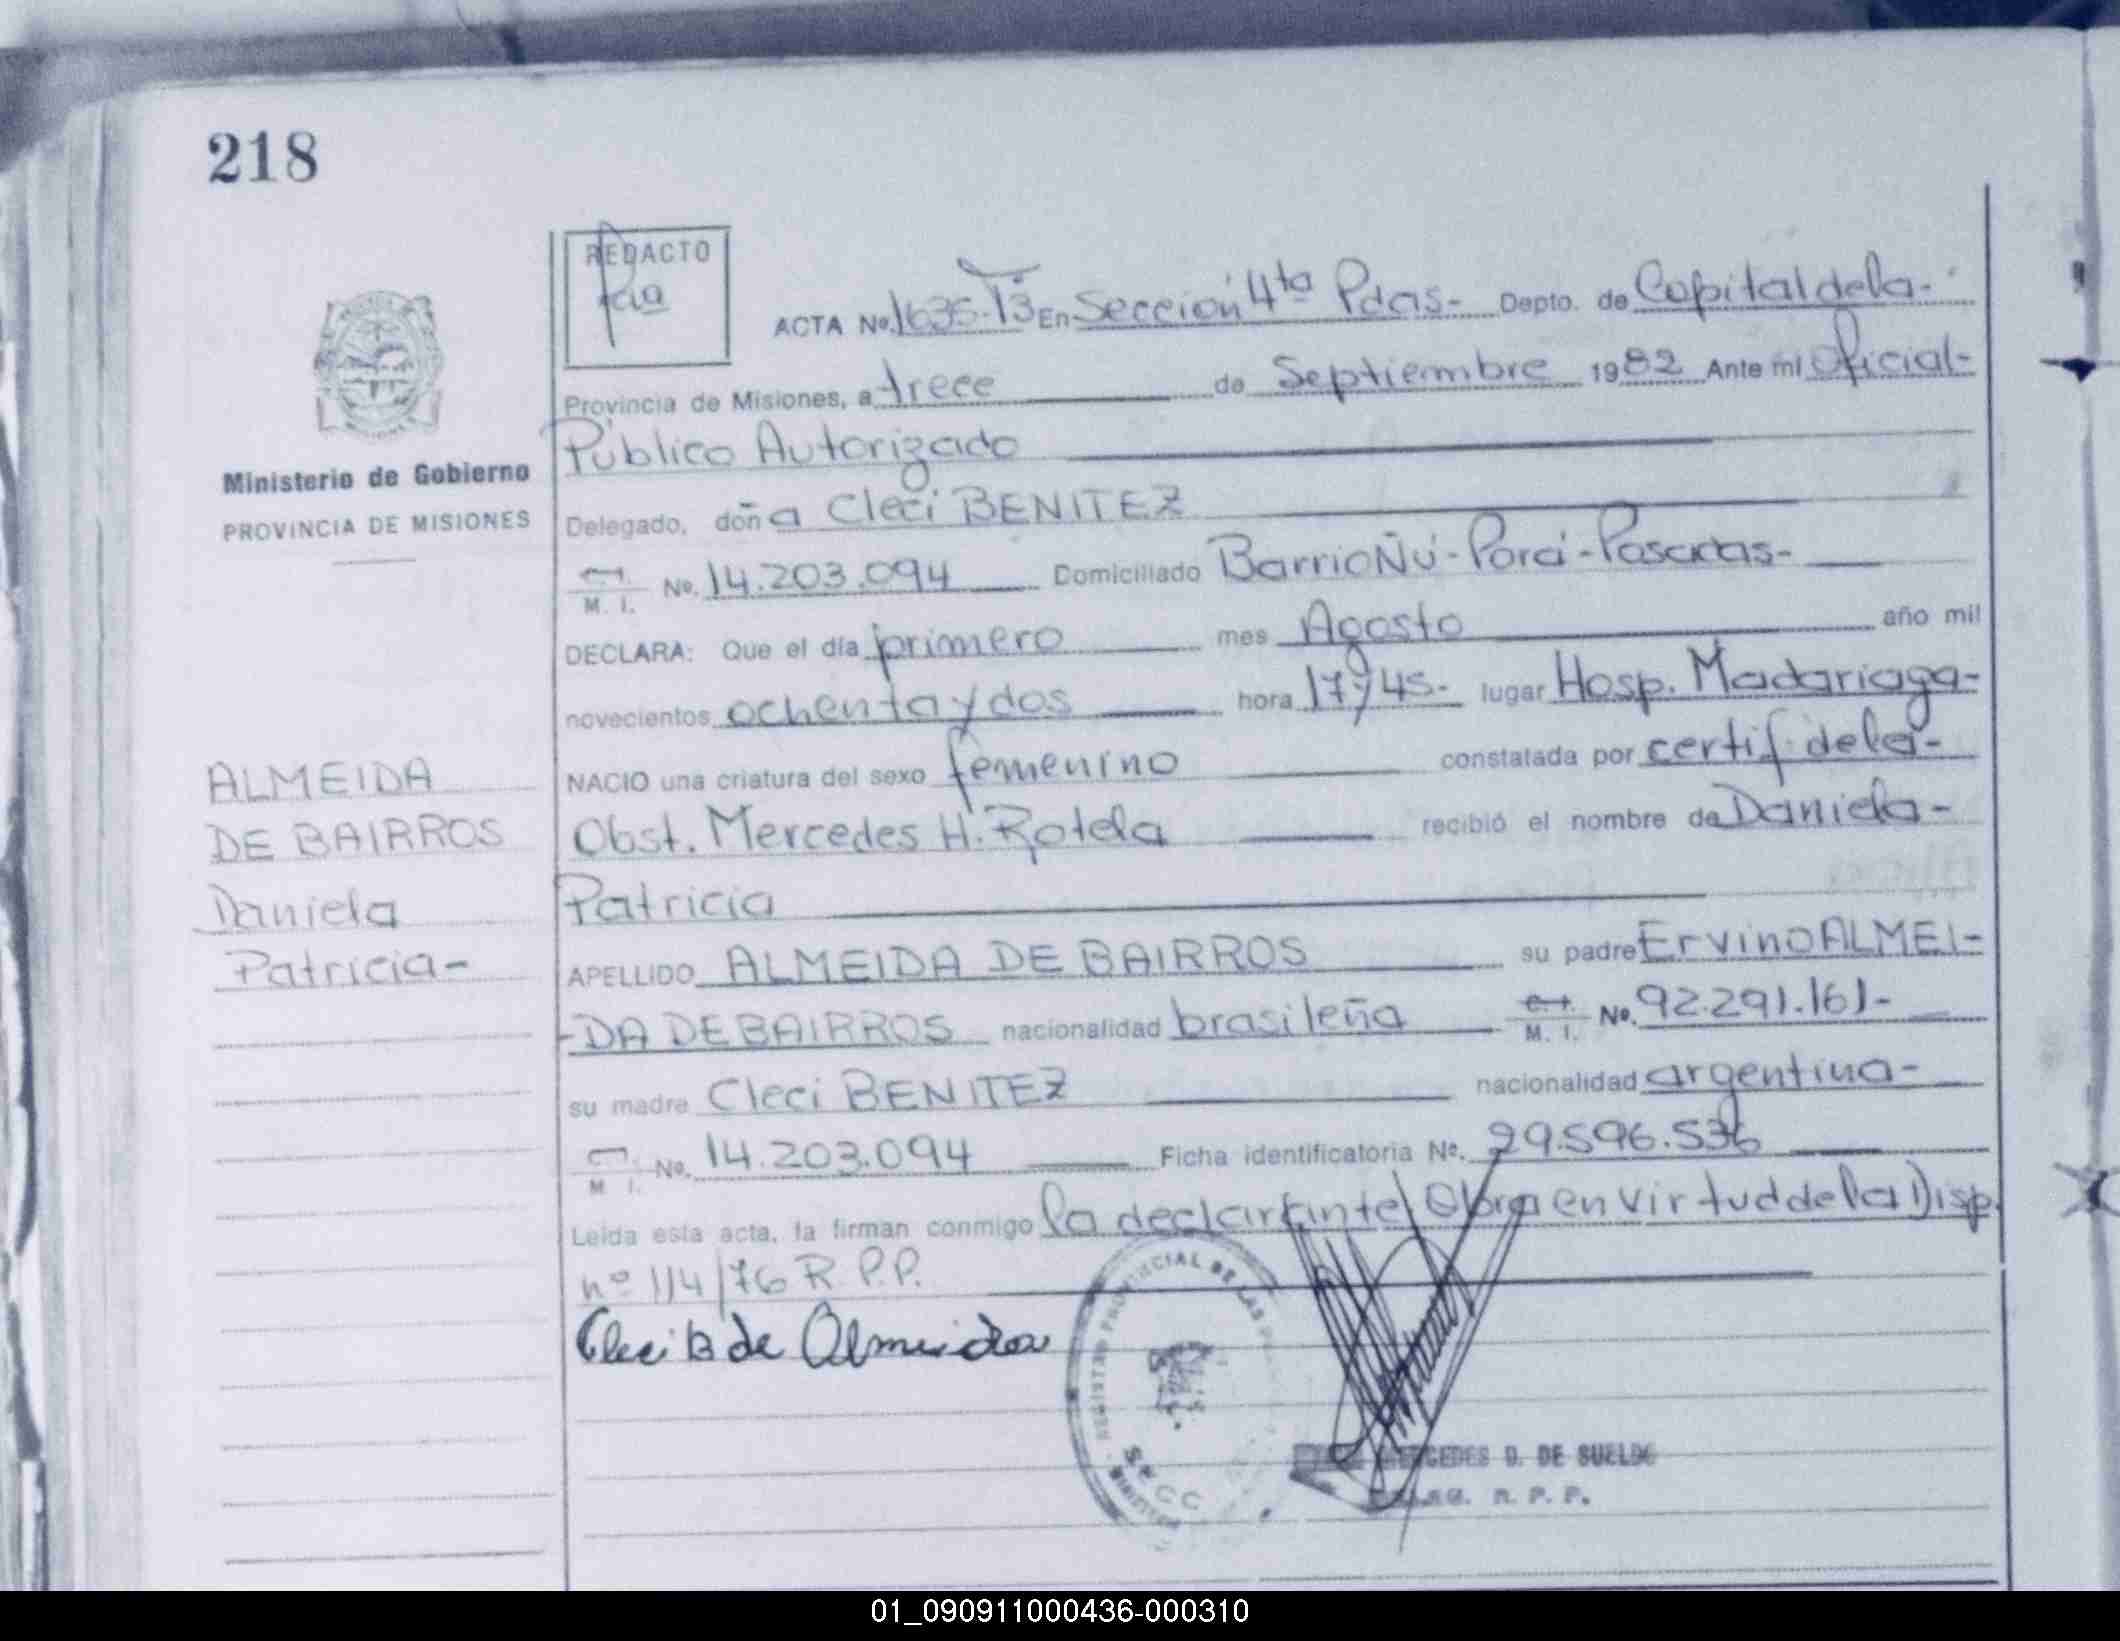 218
REDACTO
ACTA No. 1635-T3 En Sección 4ta Pdas- Depto. de Capital de la-
Provincia de Misiones, a trece de Septiembre 1982 Ante mi Oficial-
Público Autorizado
Ministerio de Gobierno
PROVINCIA DE MISIONES
Delegado, doña Cleci BENITEZ
M. I. No. 14.203.094 Domiciliado Barrio Ñú-Porá-Posadas-
DECLARA: Que el día primero mes Agosto año mil
novecientos ochenta y dos hora 17y45- lugar Hosp. Madariaga-
NACIO una criatura del sexo femenino constatada por certif. de la-
Obst. Mercedes H. Rotela recibió el nombre de Daniela-
Patricia
APELLIDO ALMEIDA DE BAIRROS su padre Ervino ALMEI-
-DA DE BAIRROS nacionalidad brasileña M. I. No. 92.291.161-
su madre Cleci BENITEZ nacionalidad argentina-
M. I. No. 14.203.094 Ficha identificatoria No. 29.596.536
Leída esta acta, la firman conmigo la declarante/Obra en virtud de la Disp.
nº 114/76 R.P.P.
Cleci B de Almeida
ALMEIDA
DE BAIRROS
Daniela
Patricia-
REGISTRO PROVINCIAL DE LAS
MERCEDES D. DE SUELDO
R. P. P.
01_090911000436-000310